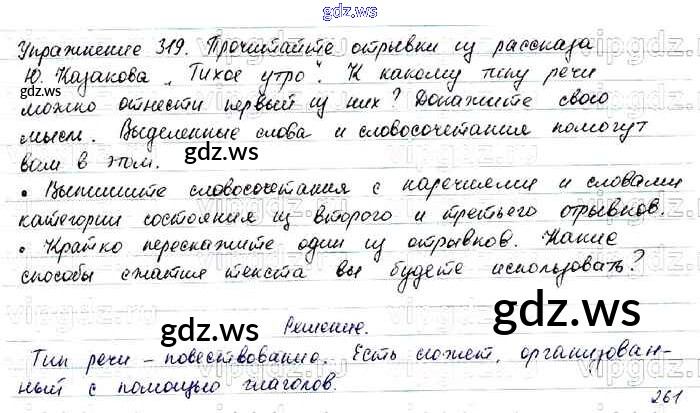 gdz.ws
Упражнение 319. Прочитайте отрывки из рассказа
Ю. Казакова „Тихое утро". К какому типу речи
можно отнести первый из них? Докажите свою
мысль. Выделенные слова и словосочетания помогут
вам в этом.
• Выпишите словосочетания с наречиями и словами
категории состояния из второго и третьего отрывков.
• Кратко перескажите один из отрывков. Какие
способы сжатия текста вы будете использовать?
Решение.
Тип речи – повествование. Есть сюжет, организован-
ный с помощью глаголов.
261
gdz.ws
gdz.ws
gdz.ws
gdz.ws
gdz.ws